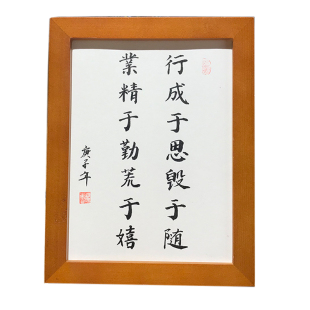 行成于思毁于随
業精于勤荒于嬉
庚子年